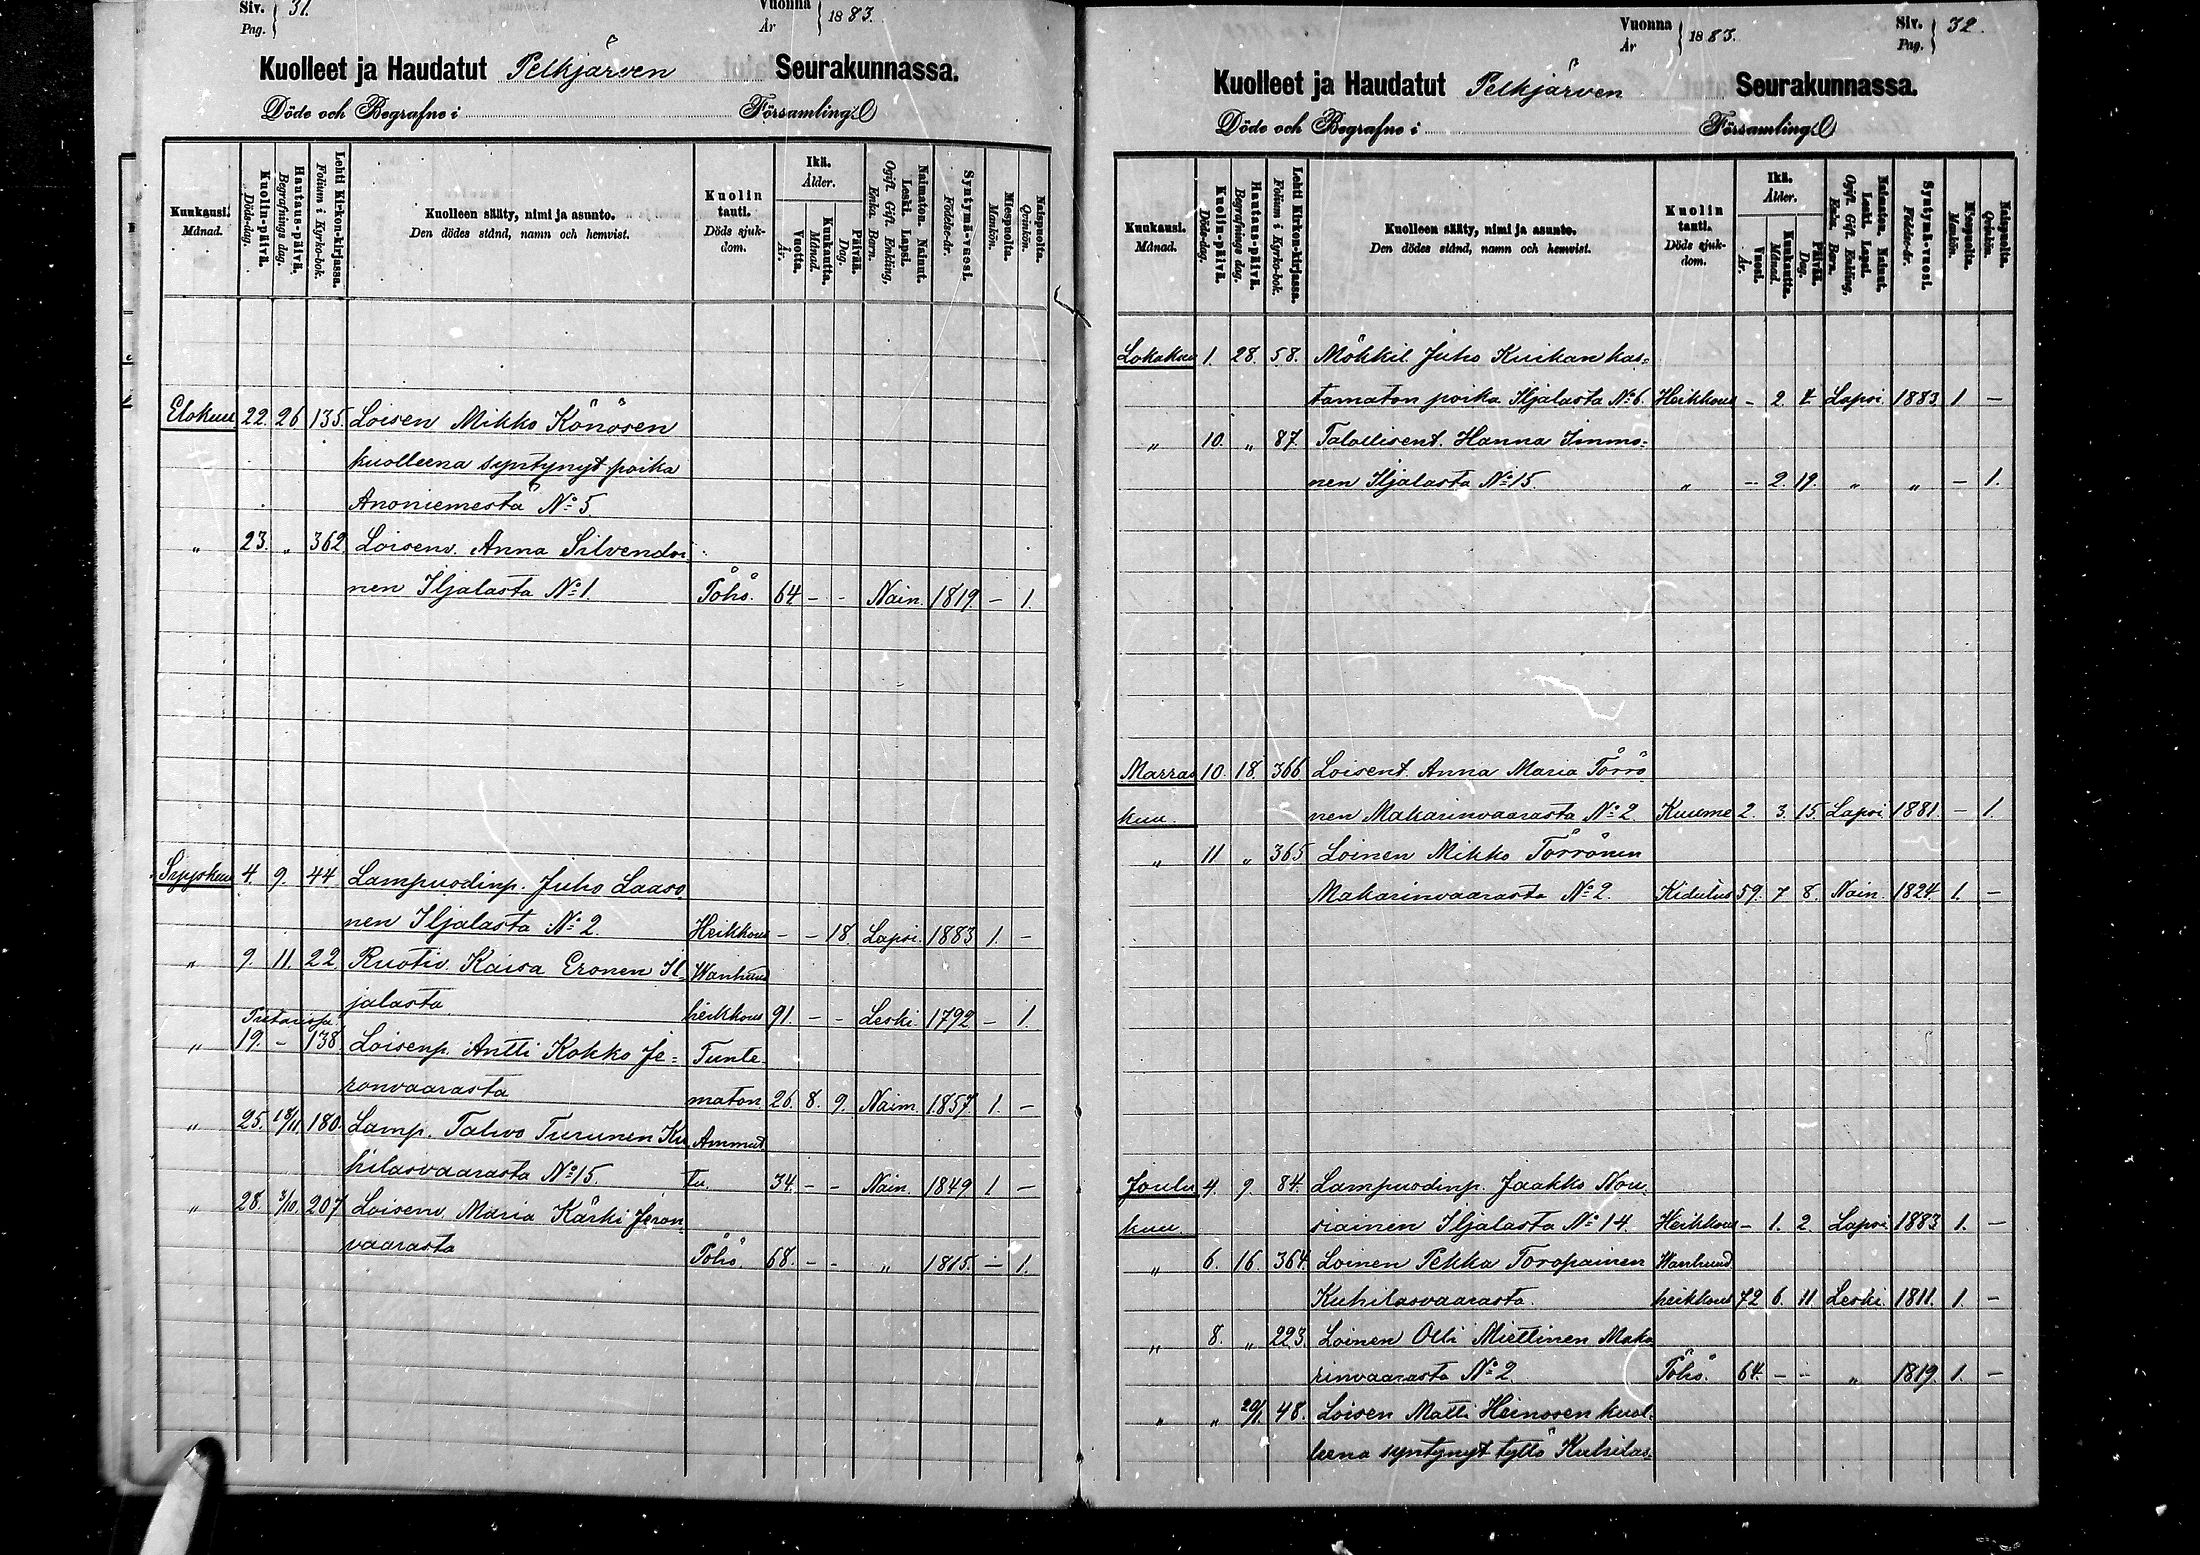 Siv. Pag. 31.
Vuonna År 1883.
Kuolleet ja Haudatut Pelkjärven Seurakunnassa.
Döde och Begrafne i Församling.
Kuukausi. Månad.
Kuolin-päivä. Döds-dag.
Hautaus-päivä. Begrafnings dag.
Lehti Kirkon-kirjassa. Folium i Kyrko-bok.
Kuolleen sääty, nimi ja asunto.
Den dödes stånd, namn och hemvist.
Kuolin tauti. Döds sjukdom.
Ikä. Ålder.
Vuotta. År.
Kuukautta. Månad.
Päivää. Dag.
Naimaton. Nainut. Leski. Lapsi.
Ogift. Gift. Enkling, Enka. Barn.
Syntymä-vuosi. Födelse-år.
Miespuolta. Mankön.
Naispuolta. Qvinkön.
Elokuu 22. 26 135. Loisen Mikko Könösen
kuolleena syntynyt poika
Anoniemestä No 5
„ 23. „ 362 Loisenv. Anna Silvendoi
nen Iljalasta No 1. Töhö. 64 - - Nain. 1819. - 1.
Syyskuu 4 9. 44 Lampuodinp. Juho Laaso
nen Iljalasta No 2. Heikkous - - 18 Lapsi. 1883 1. -
„ 9. 11. 22 Ruotiv. Kaisa Eronen Il- Wanhuud
jalasta heikkous 91. - - Leski. 1792 - 1.
„ 19. - 138. Loisenp. Antti Kokko Je= Tunte-
ronvaarasta maton 26. 8. 9. Naim. 1857 1. -
„ 25. 18/11. 180. Lamp. Tahvo Turunen Ku Ammut
hilasvaarasta No 15. tu. 34. - - Nain. 1849 1 -
„ 28. 3/10. 207 Loisenv. Maria Kärki Jeron
vaarasta Töhö. 68. - - „ 1815. - 1.
Vuonna År 1883.
Siv. Pag. 32.
Kuolleet ja Haudatut Pelkjärven Seurakunnassa.
Döde och Begrafne i Församling.
Kuukausi. Månad.
Kuolin-päivä. Döds-dag.
Hautaus-päivä. Begrafnings dag.
Lehti Kirkon-kirjassa. Folium i Kyrko-bok.
Kuolleen sääty, nimi ja asunto.
Den dödes stånd, namn och hemvist.
Kuolin tauti. Döds sjukdom.
Ikä. Ålder.
Vuosi. År.
Kuukautta. Månad.
Päivää. Dag.
Naimaton. Nainut. Leski. Lapsi.
Ogift. Gift. Enkling, Enka. Barn.
Syntymä-vuosi. Födelse-år.
Miespuolta. Mankön.
Naispuolta. Qvinkön.
Lokakuu 1. 28. 58. Mökkil. Juho Kuikan kas=
tamaton poika Iljalasta No 6. Heikkous - 2. Lapsi. 1883 1. -
„ 10. „ 87. Talollisent. Hanna Immo=
nen Iljalasta No 15. „ - 2. 19. „ „ - 1.
Marras 10. 18. 366 Loisent. Anna Maria Törrö
kuu. nen Makarinvaarasta No 2 Kuume 2. 3. 15. Lapsi 1881. - 1.
„ 11 „ 365 Loinen Mikko Törrönen
Makarinvaarasta No 2. Kidutus 59. 7 8. Nain. 1824. 1. -
Joulu 4. 9. 84. Lampuodinp. Jaakko Nou
kuu. siainen Iljalasta No 14. Heikkous - 1. 2. Lapsi 1883 1. -
„ 6. 16. 364. Loinen Pekka Toropainen Wanhuud
Kuhilasvaarasta. heikkous 72 6. 11 Leski. 1811. 1. -
„ 8. „ 223. Loinen Olli Miettinen Maka
rinvaarasta No 2. Töhö. 64. - - „ 1819. 1. -
„ „ 20/1 48. Loisen Matti Heinosen kuol-
leena syntynyt tyttö Kuhilas-